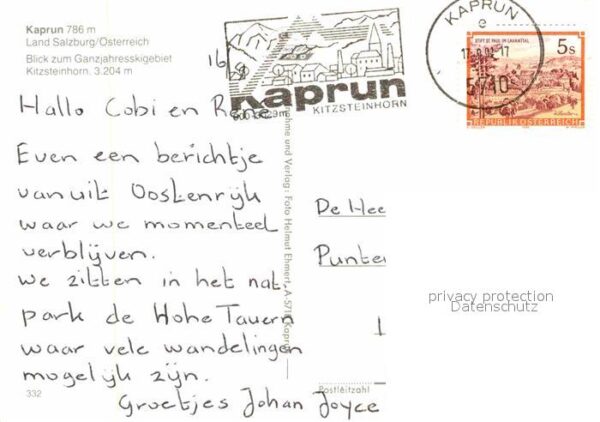 Kaprun 786 m
Land Salzburg/Österreich
Blick zum Ganzjahresskigebiet
Kitzsteinhorn. 3.204 m
Kaprun
KITZSTEINHORN
KAPRUN
5710
STIFT ST. PAUL IM LAVANTTAL
5s
REPUBLIK ÖSTERREICH
Hallo Cobi en R
Even een berichtje
vanuit Oostenrijk
waar we momenteel
verblijven.
We zitten in het nat.
park de Hohe Tauern
waar vele wandelingen
mogelijk zijn.
Groetjes Johan Joyce
332
und Verlag: Foto Helmut Ehmert, A-571 Kaprun
De Hee
Punter
Postleitzahl
privacy protection
Datenschutz